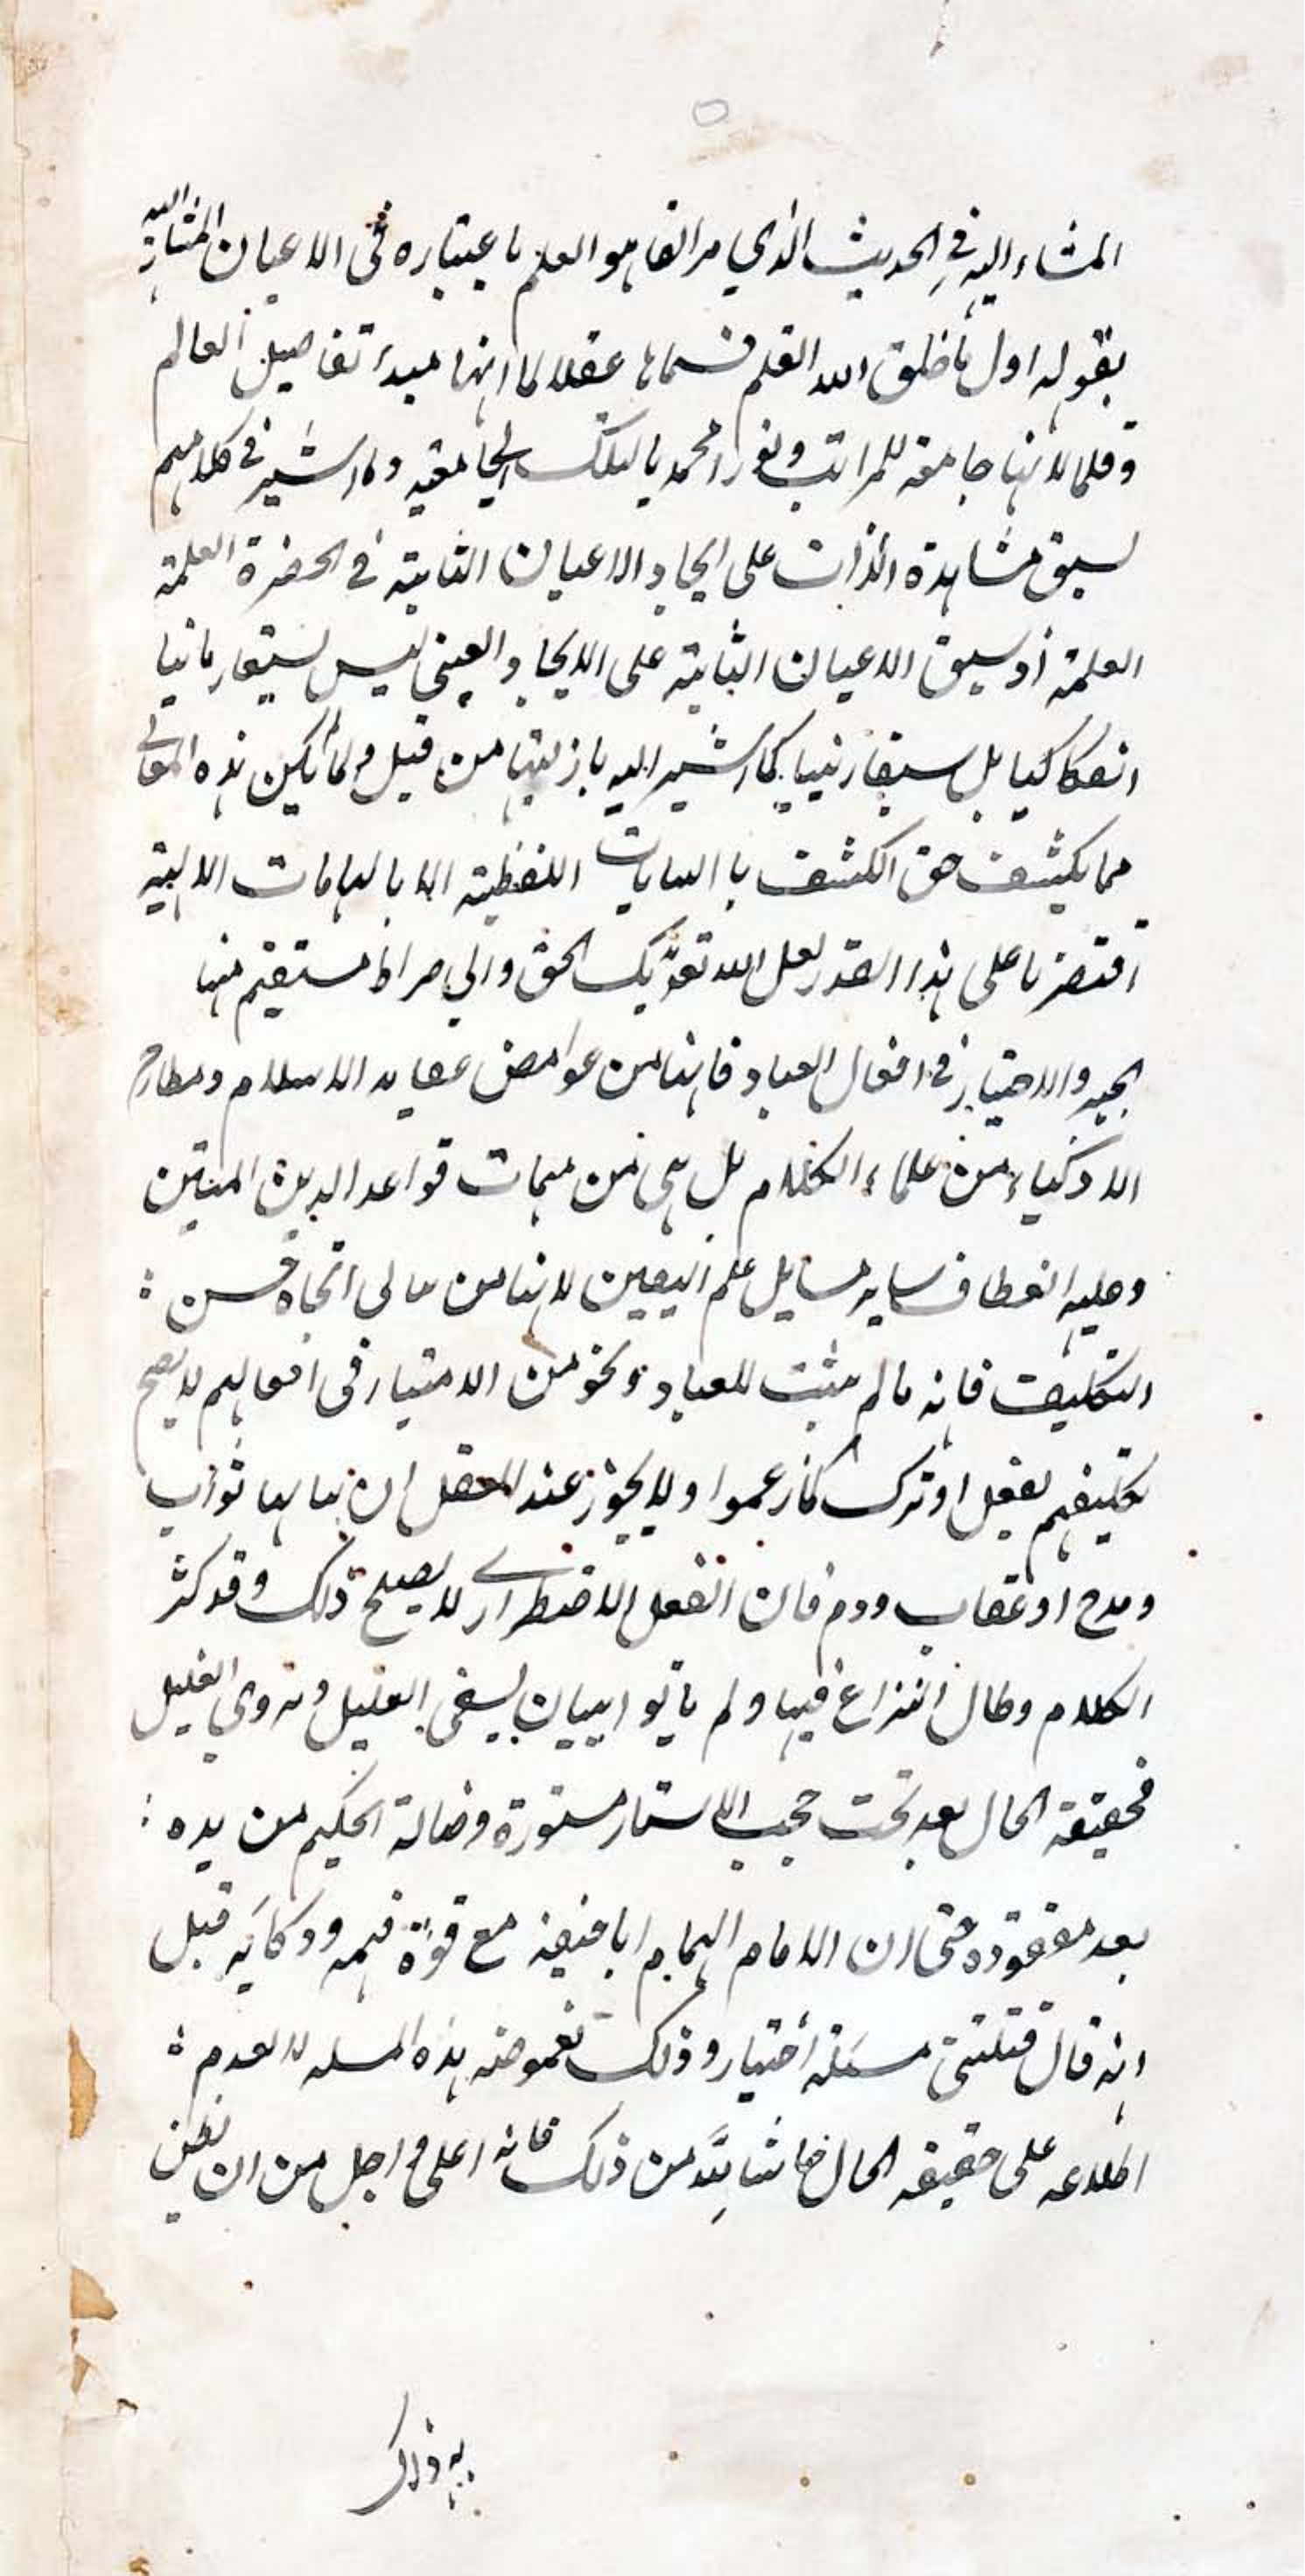 المشار اليه في الحديث الذي مر انفا هو العلم باعتباره في الاعيان المشار اليه
بقوله اول ما خلق الله القلم فسماها عقلا لما انها مبدء تفاصيل العالم
وقلما لانها جامعة للمراتب ونورا محمديا لتلك الجامعية وما اشير في كلامهم
لسبق مشاهدة الذات على ايجاد الاعيان الثابتة في الحضرة العلمية
العلمية او سبق الاعيان الثابتة على الايجاد العيني ليس سبقا زمانيا
انفكاكيا بل سبقا رتبيا كما اشير اليه بازليتها من قبل ولما لم يكن هذه المعاني
مما يكشف حق الكشف با البيانات اللفظية الا بالهامات الالهية
اقتصرنا على هذا القدر لعل الله يهديك الحق والى صراط مستقيم منها
الجبر والاختيار في افعال العباد فانها من غوامض عقايد الاسلام ومطارح
الاذكياء من علماء الكلام بل هي من مهمات قواعد الدين المتين
وعليه انعطاف ساير مسايل علم اليقين لانها من
التكليف فانه ما لم يثبت للعباد نحو من الاختيار في افعالهم لا يصح
تكليفهم بفعل او ترك كما زعموا ولا يجوز عند العقل ان ثواب
ومدح او عقاب وذم فان الفعل الاضطراري لا يصلح ذلك وقد كثر
الكلام وطال النزاع فيها ولم ياتوا ببيان يشفي العليل ويروي الغليل
فحقيقة الحال بعد تحت حجب الاستار مستورة وضالة الحكيم من يده :
بعد مفقودة حتى ان الامام الهمام ابا حنيفة مع قوة فهمه وذكائه قيل
انه قال قتلتني مسئلة اختيار وذلك لغموضه هذه المسله لا لعدم :
اطلاعه على حقيقة الحال حاشا لله من ذلك فانه اعلى واجل من ان يظن
به ذلك